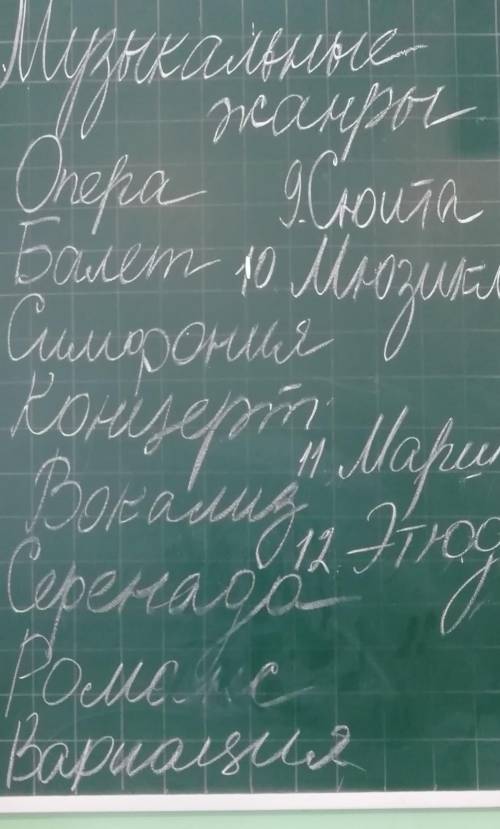 Музыкальные
жанры
Опера
Балет
Симфония
Концерт
Вокализ
Серенада
Романс
Вариация
9. Сюита
10 Мюзикл
11. Марш
12. Этюд